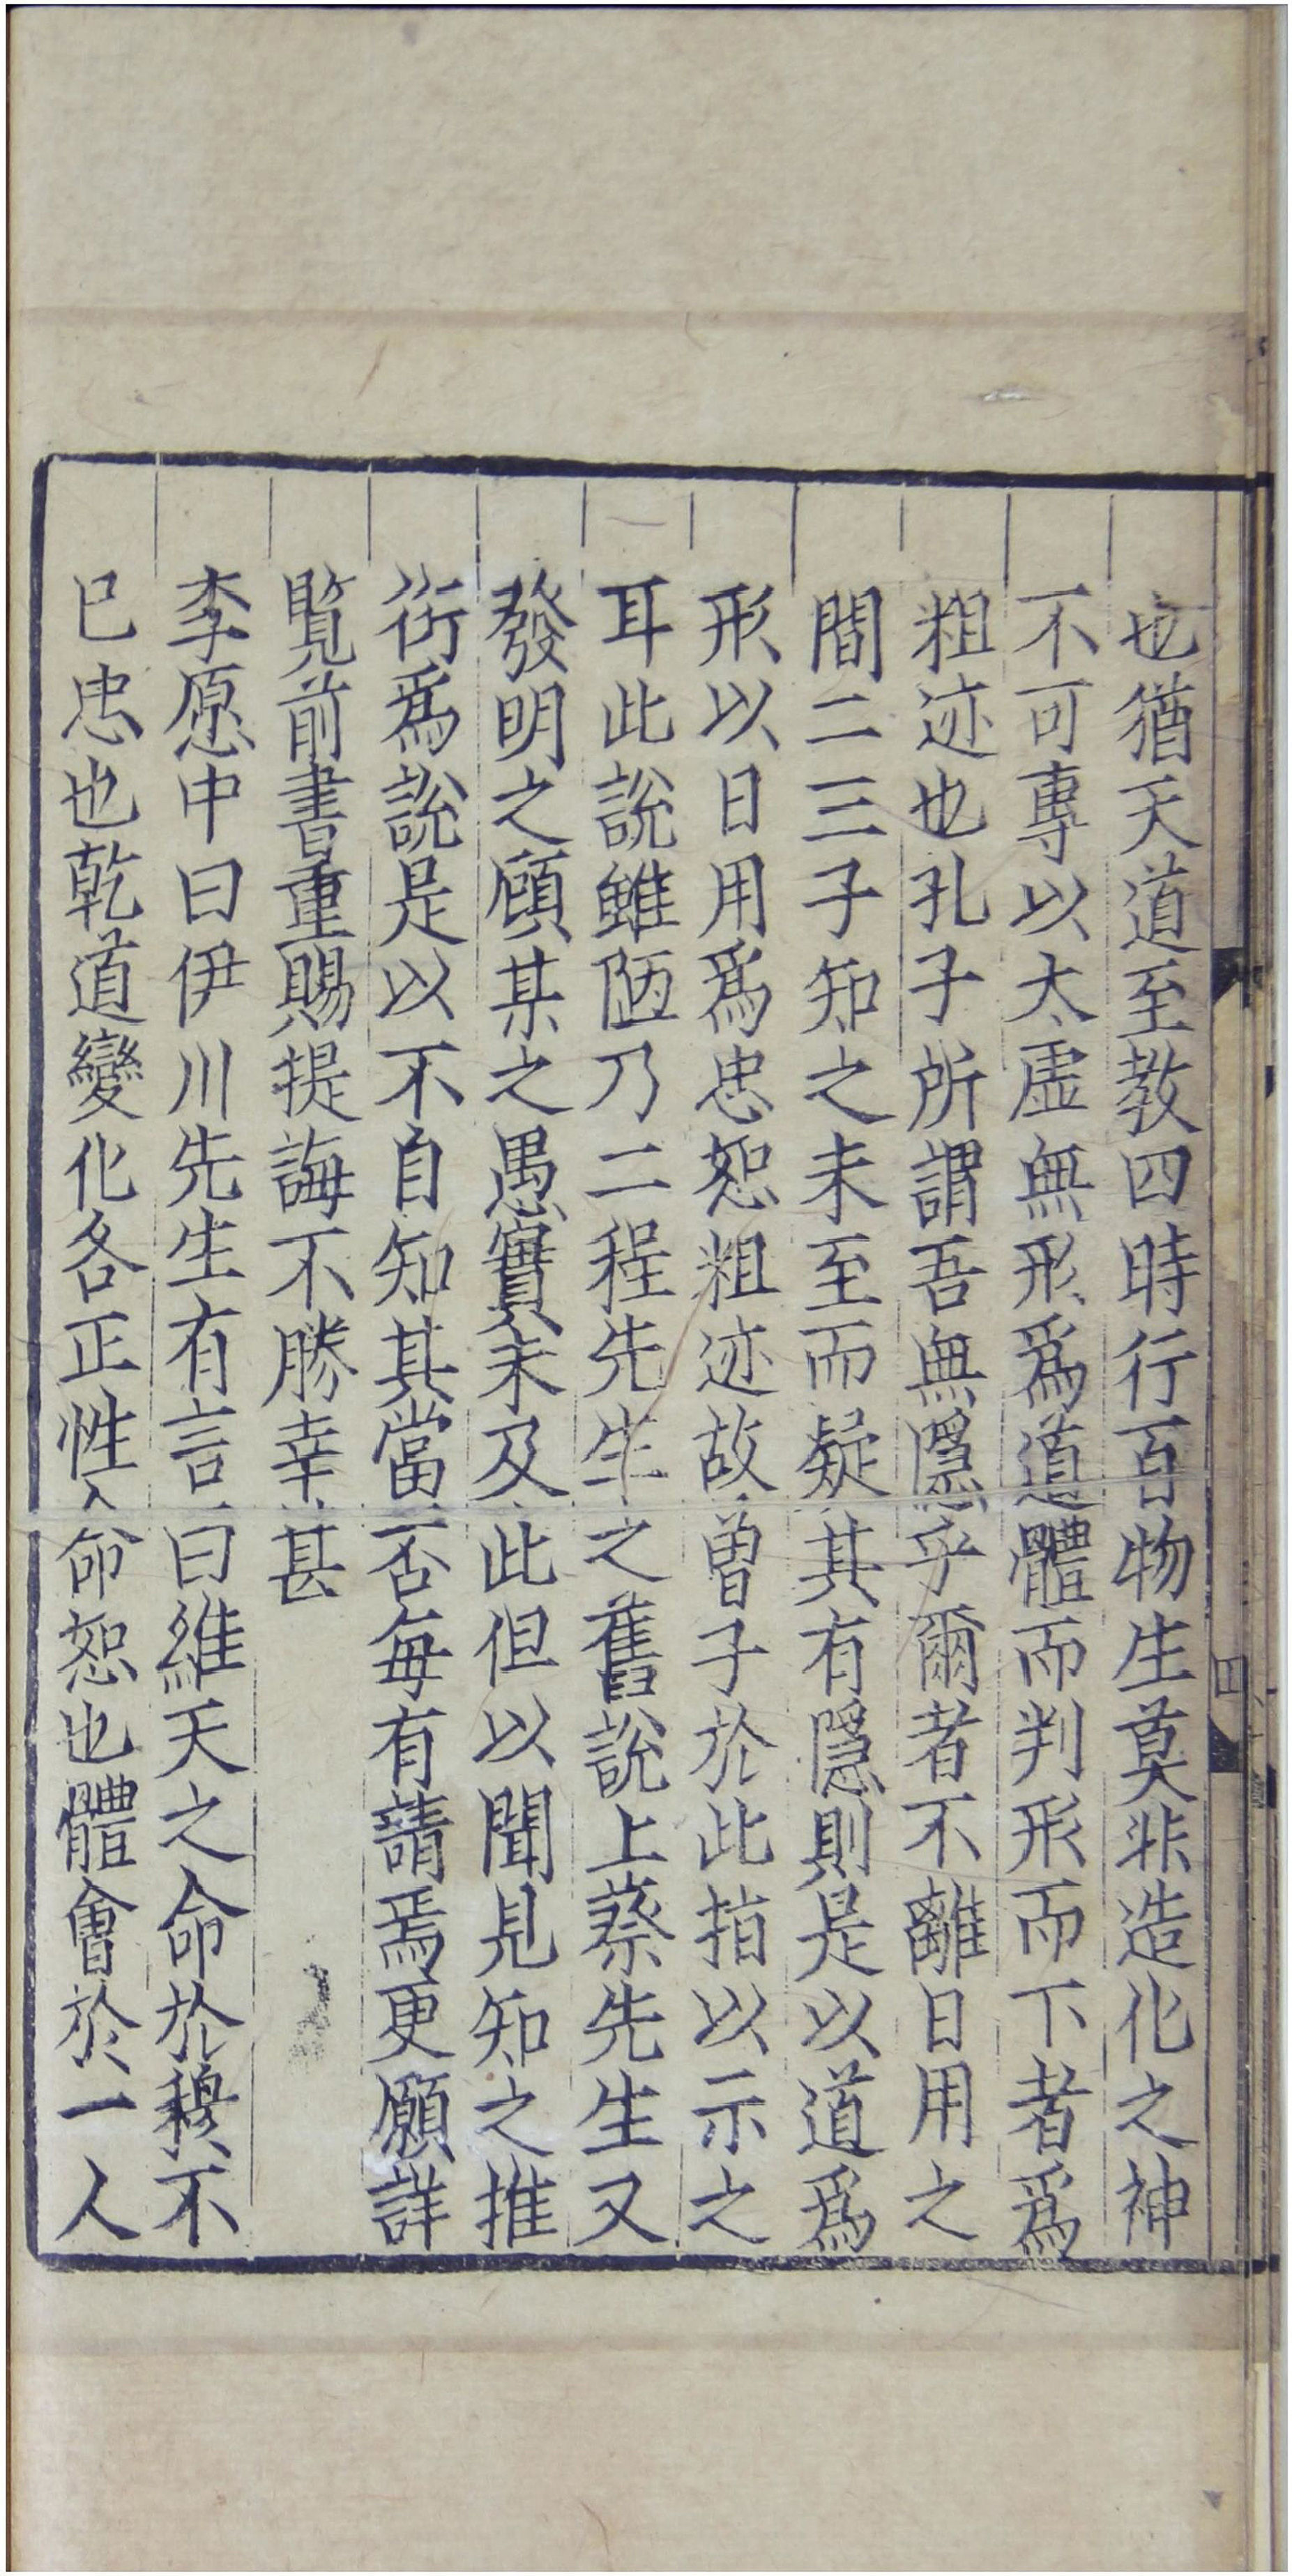 也猶天道至教四時行百物生莫非造化之神
不可專以太虛無形爲道體而判形而下者爲
粗迹也孔子所謂吾無隱乎爾者不離日用之
間二三子知之未至而疑其有隱則是以道爲
形以日用爲忠恕粗迹故曾子於此指以示之
耳此說雖陋乃二程先生之舊說上蔡先生又
發明之顧某之愚實未及此但以聞見知之推
衍爲說是以不自知其當否每有請焉更願詳
覧前書重賜提誨不勝幸甚
李愿中曰伊川先生有言曰維天之命於穆不
已忠也乾道變化各正性命恕也體會於一人